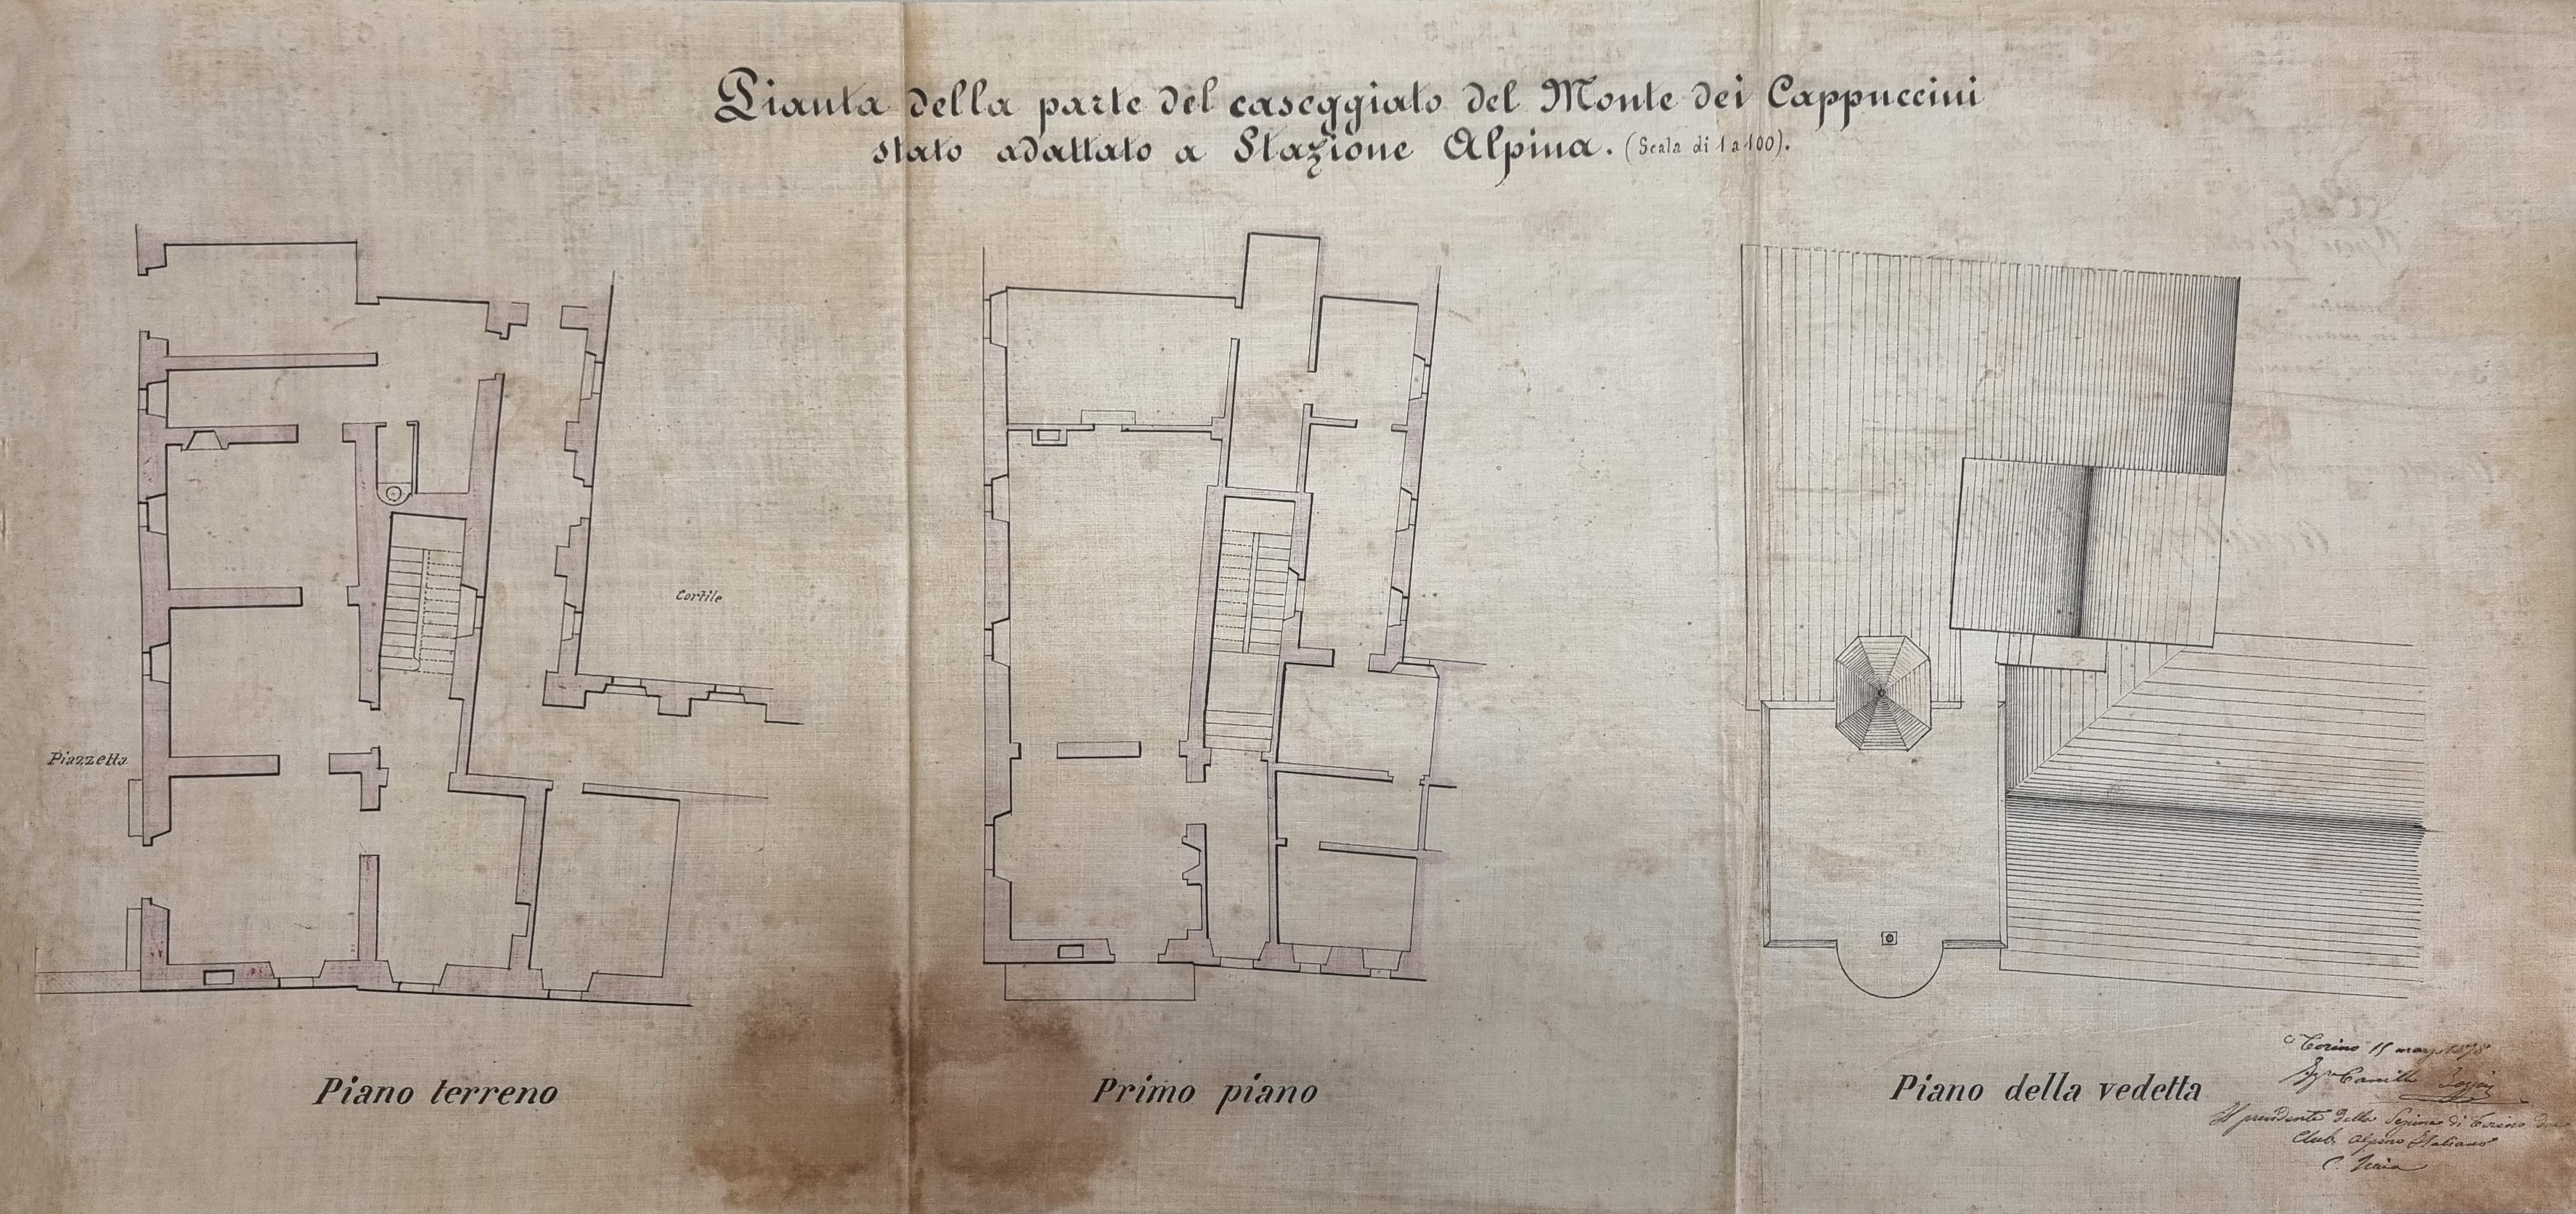 Pianta della parte del caseggiato del Monte dei Cappuccini
stato adattato a Stazione Alpina. (Scala di 1 a 100).
Cortile
Piazzetta
Piano terreno
Primo piano
Piano della vedetta
Torino 15 marzo 1878
Ing.re Camillo
Il presidente della Sezione di Torino del
Club Alpino Italiano
C.